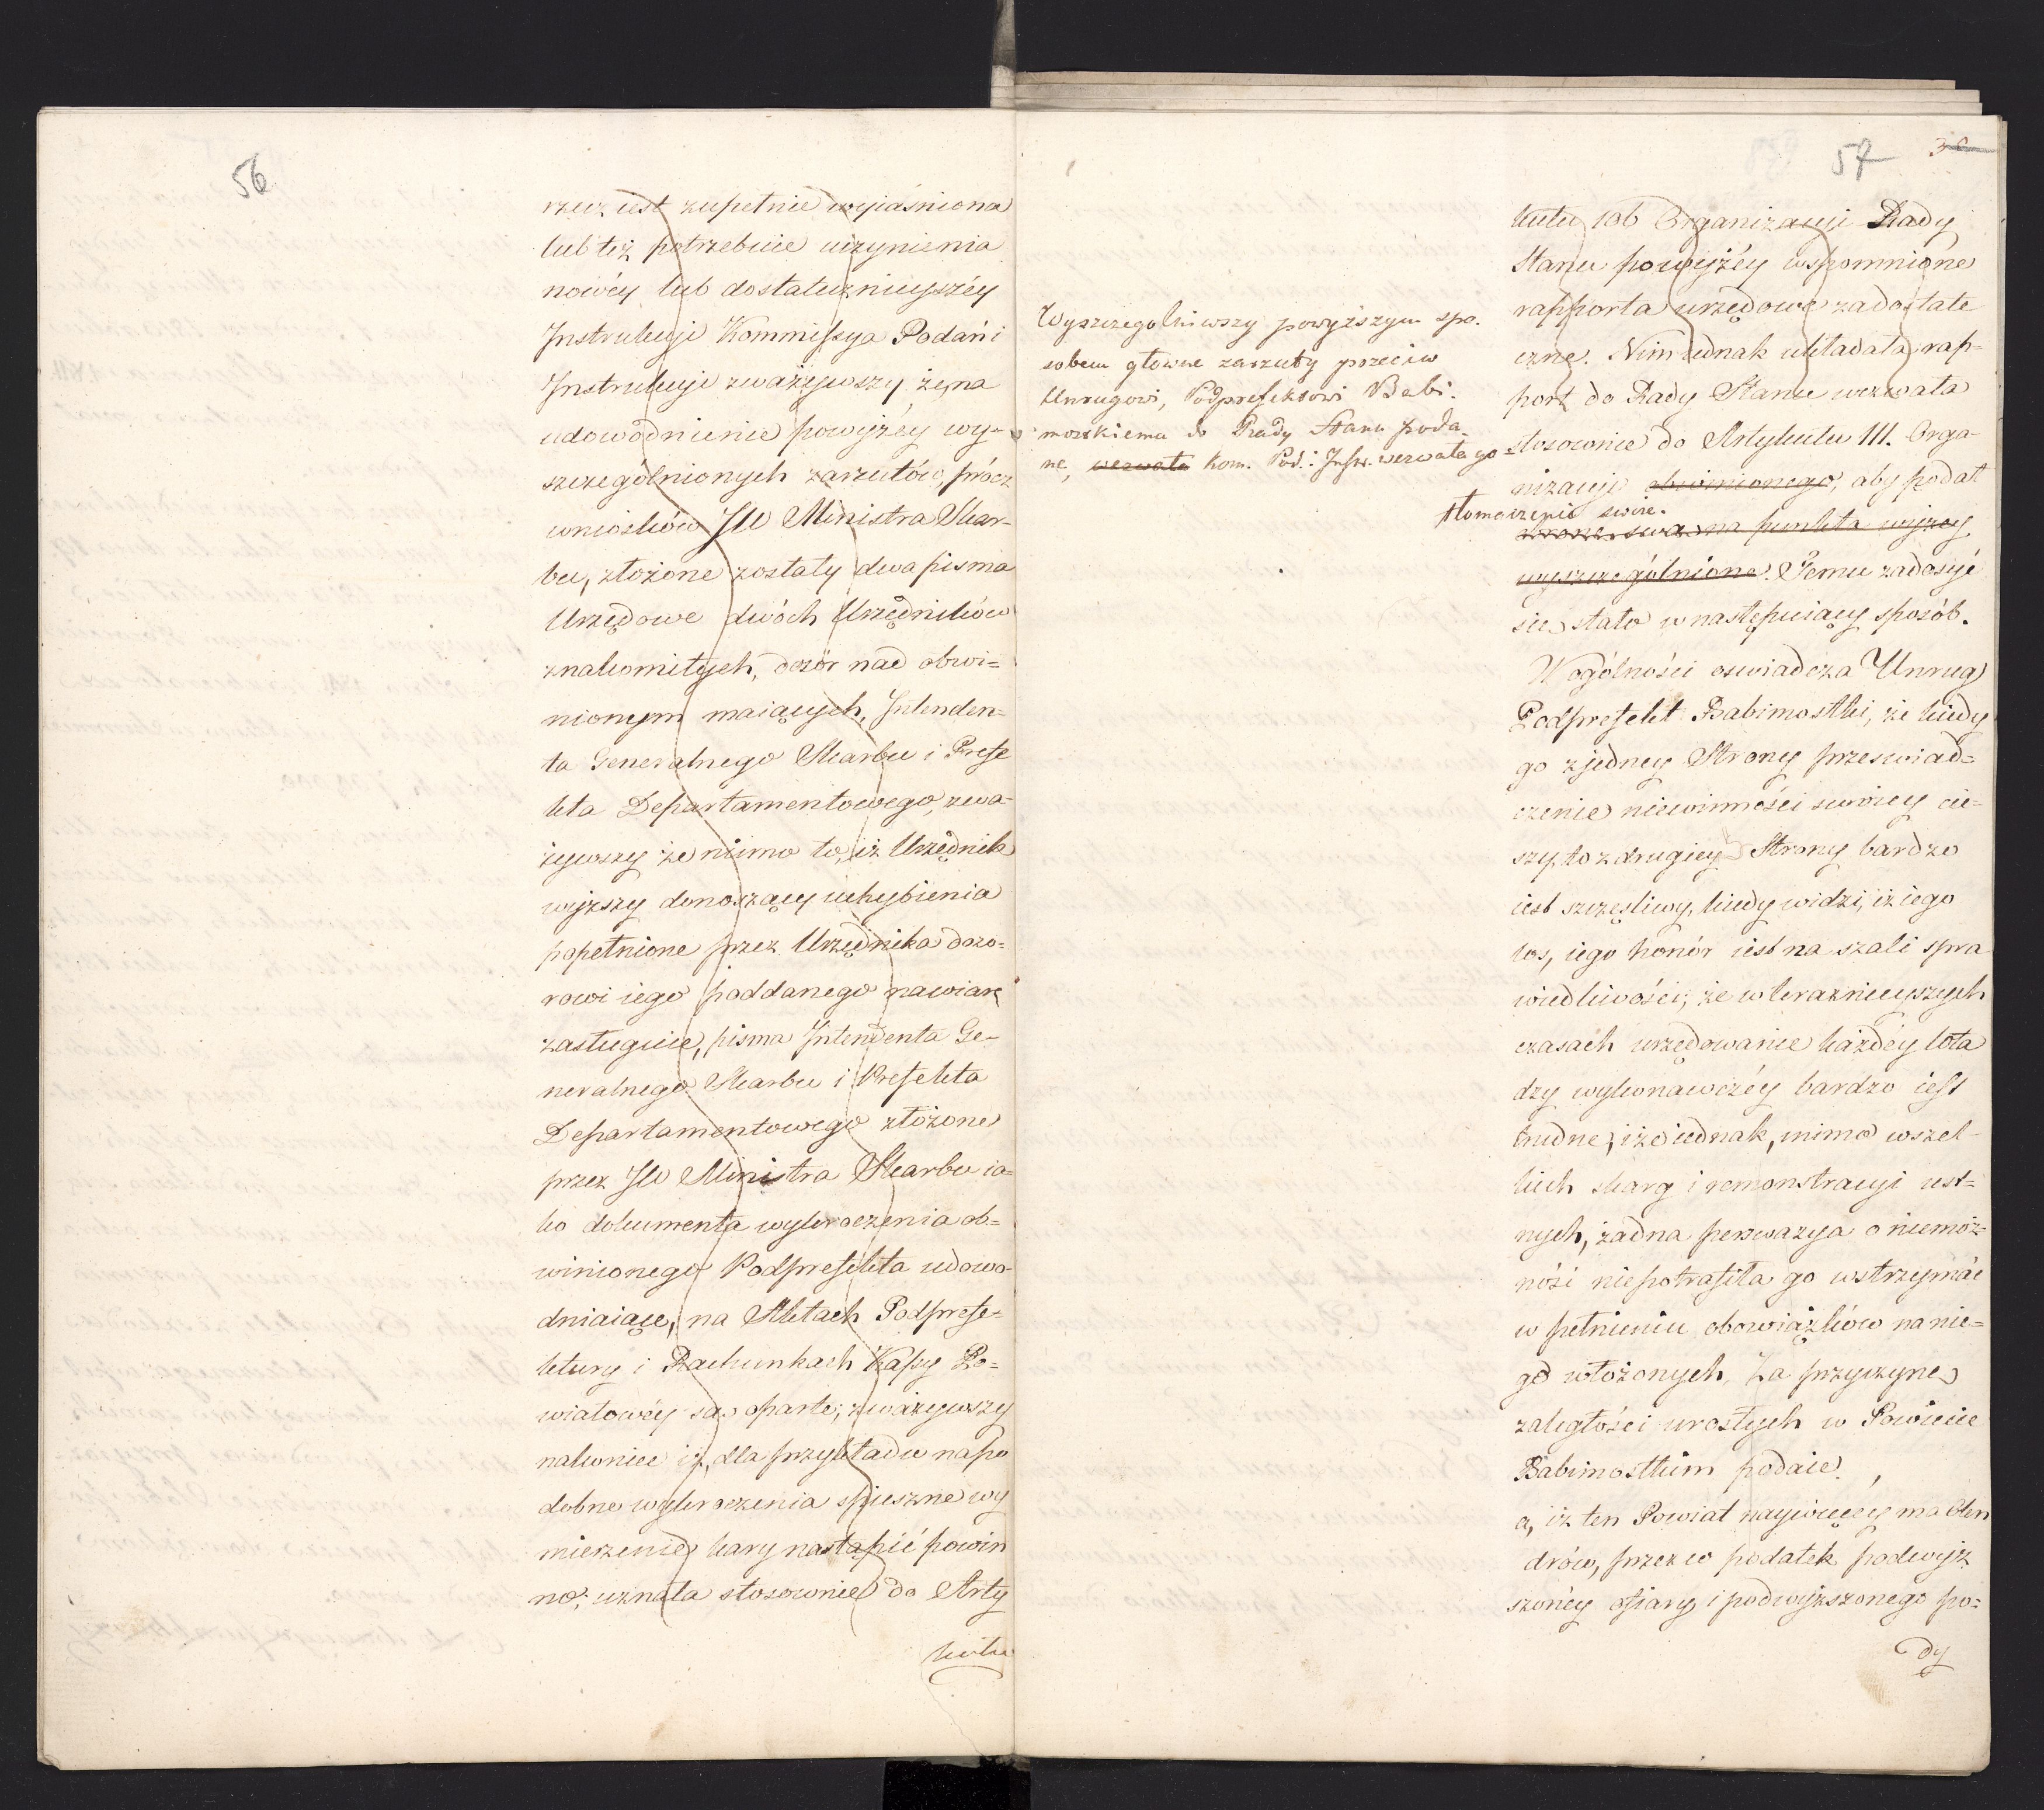 56
rzecz iest zupełnie wyiaśniona
lub też potrzebuie uczynienia
nowéy lub dostatecznieyszéy
Instrukcyi Kommissya Podań i
Instrukcyi zważywszy, że, na
udowodnienie powyżéy wy-
szczególnionych zarzutów, prócz
wniosków JW Ministra Skar-
bu, złożone zostały dwa pisma
Urzędowe dwóch Urzędników
znakomitych, dozór nad obwi=
nionym maiących, Intenden=
ta Generalnego Skarbu i Prefe
kta Departamentowego, zwa-
żywszy że mimo to, iż Urzędnik
wyższy donoszący uchybienia
popełnione przez Urzędnika dozo=
rowi iego poddanego na wiarę
zasługuie, pisma Intendenta Ge-
neralnego Skarbu i Prefekta
Departamentowego złożone
przez JW Ministra Skarbu ia=
ko dokumenta wykroczenia ob=
winionego Podprefekta udowo-
dniaiące, na Aktach Podprefe=
ktury i Rachunkach Kassy Po=
wiatowéy są oparte; zważywszy
nakoniec iż, dla przykładu na po
dobne wykroczenia spieszne wy
mierzenie kary nastąpić powin
no; uznała stosownie do Arty
kułu
57
kułu 106 Organizacyi Rady
Stanu powyżéy wspomnione
rapporta urzędowe za dostate
czne. Nim iednak układała rap-
port do Rady Stanu wezwała
stosownie do Artykułu 111. Orga-
nizacyi obwinionego, aby podał
Wyszczególniwszy powyższym spo.
sobem główne zarzuty przeciw
Unrugowi, Podprefektowi Babi.
mostkiemu do Rady Stanu poda.
ne, wezwała Kom. Pod: i Instr. wezwała go
tłomaczenie swoie.
swa na punkta wyżey
wyszczególnione. Temu zadosyć
się stało w następuiący sposób.
W ogólności oswiadcza Unrug
Podprefekt Babimostki, że kiedy
go z jedney Strony przeswiad=
czenie niewinności swoiey cie=
szy, to z drugiey Strony bardzo
iest szczęśliwy, kiedy widzi, iż iego
los, iego honór iest na szali spra
wiedliwości; że w teraznieyszych
czasach urzędowanie każdéy wła
dzy wykonawczéy bardzo iest
trudne; iż iednak, mimo wszel-
kich skarg i remonstracyi ust=
nych, żadna perswazya o niemoż=
ności niepotrafiła go wstrzymać
w pełnieniu obowiązków na nie=
go włożonych. Za przyczynę
zaległości urosłych w Powiecie
Babimostkim podaie.
a, iż ten Powiat naywięcey ma Olen
drów, przez co podatek podwyż
szonéy ofiary i podwyższonego po=
dy